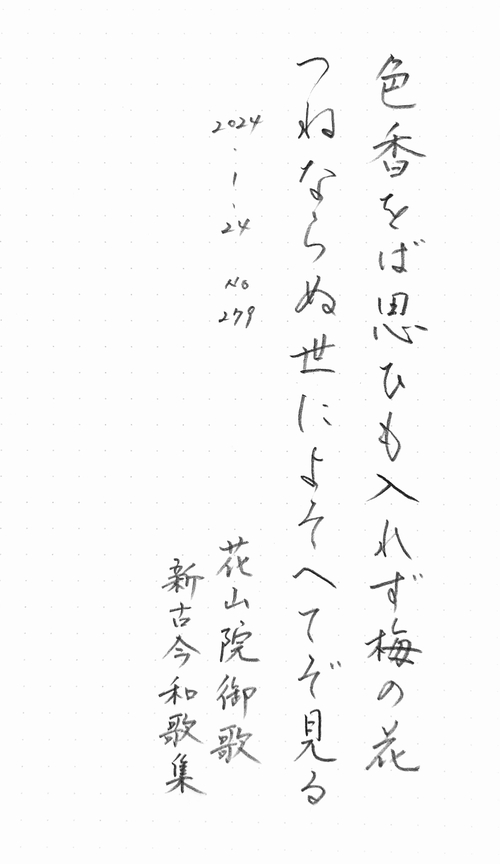 色香をば思ひも入れず梅の花
つねならぬ世によそへてぞ見る
2024・1・24 No 279
花山院御歌
新古今和歌集